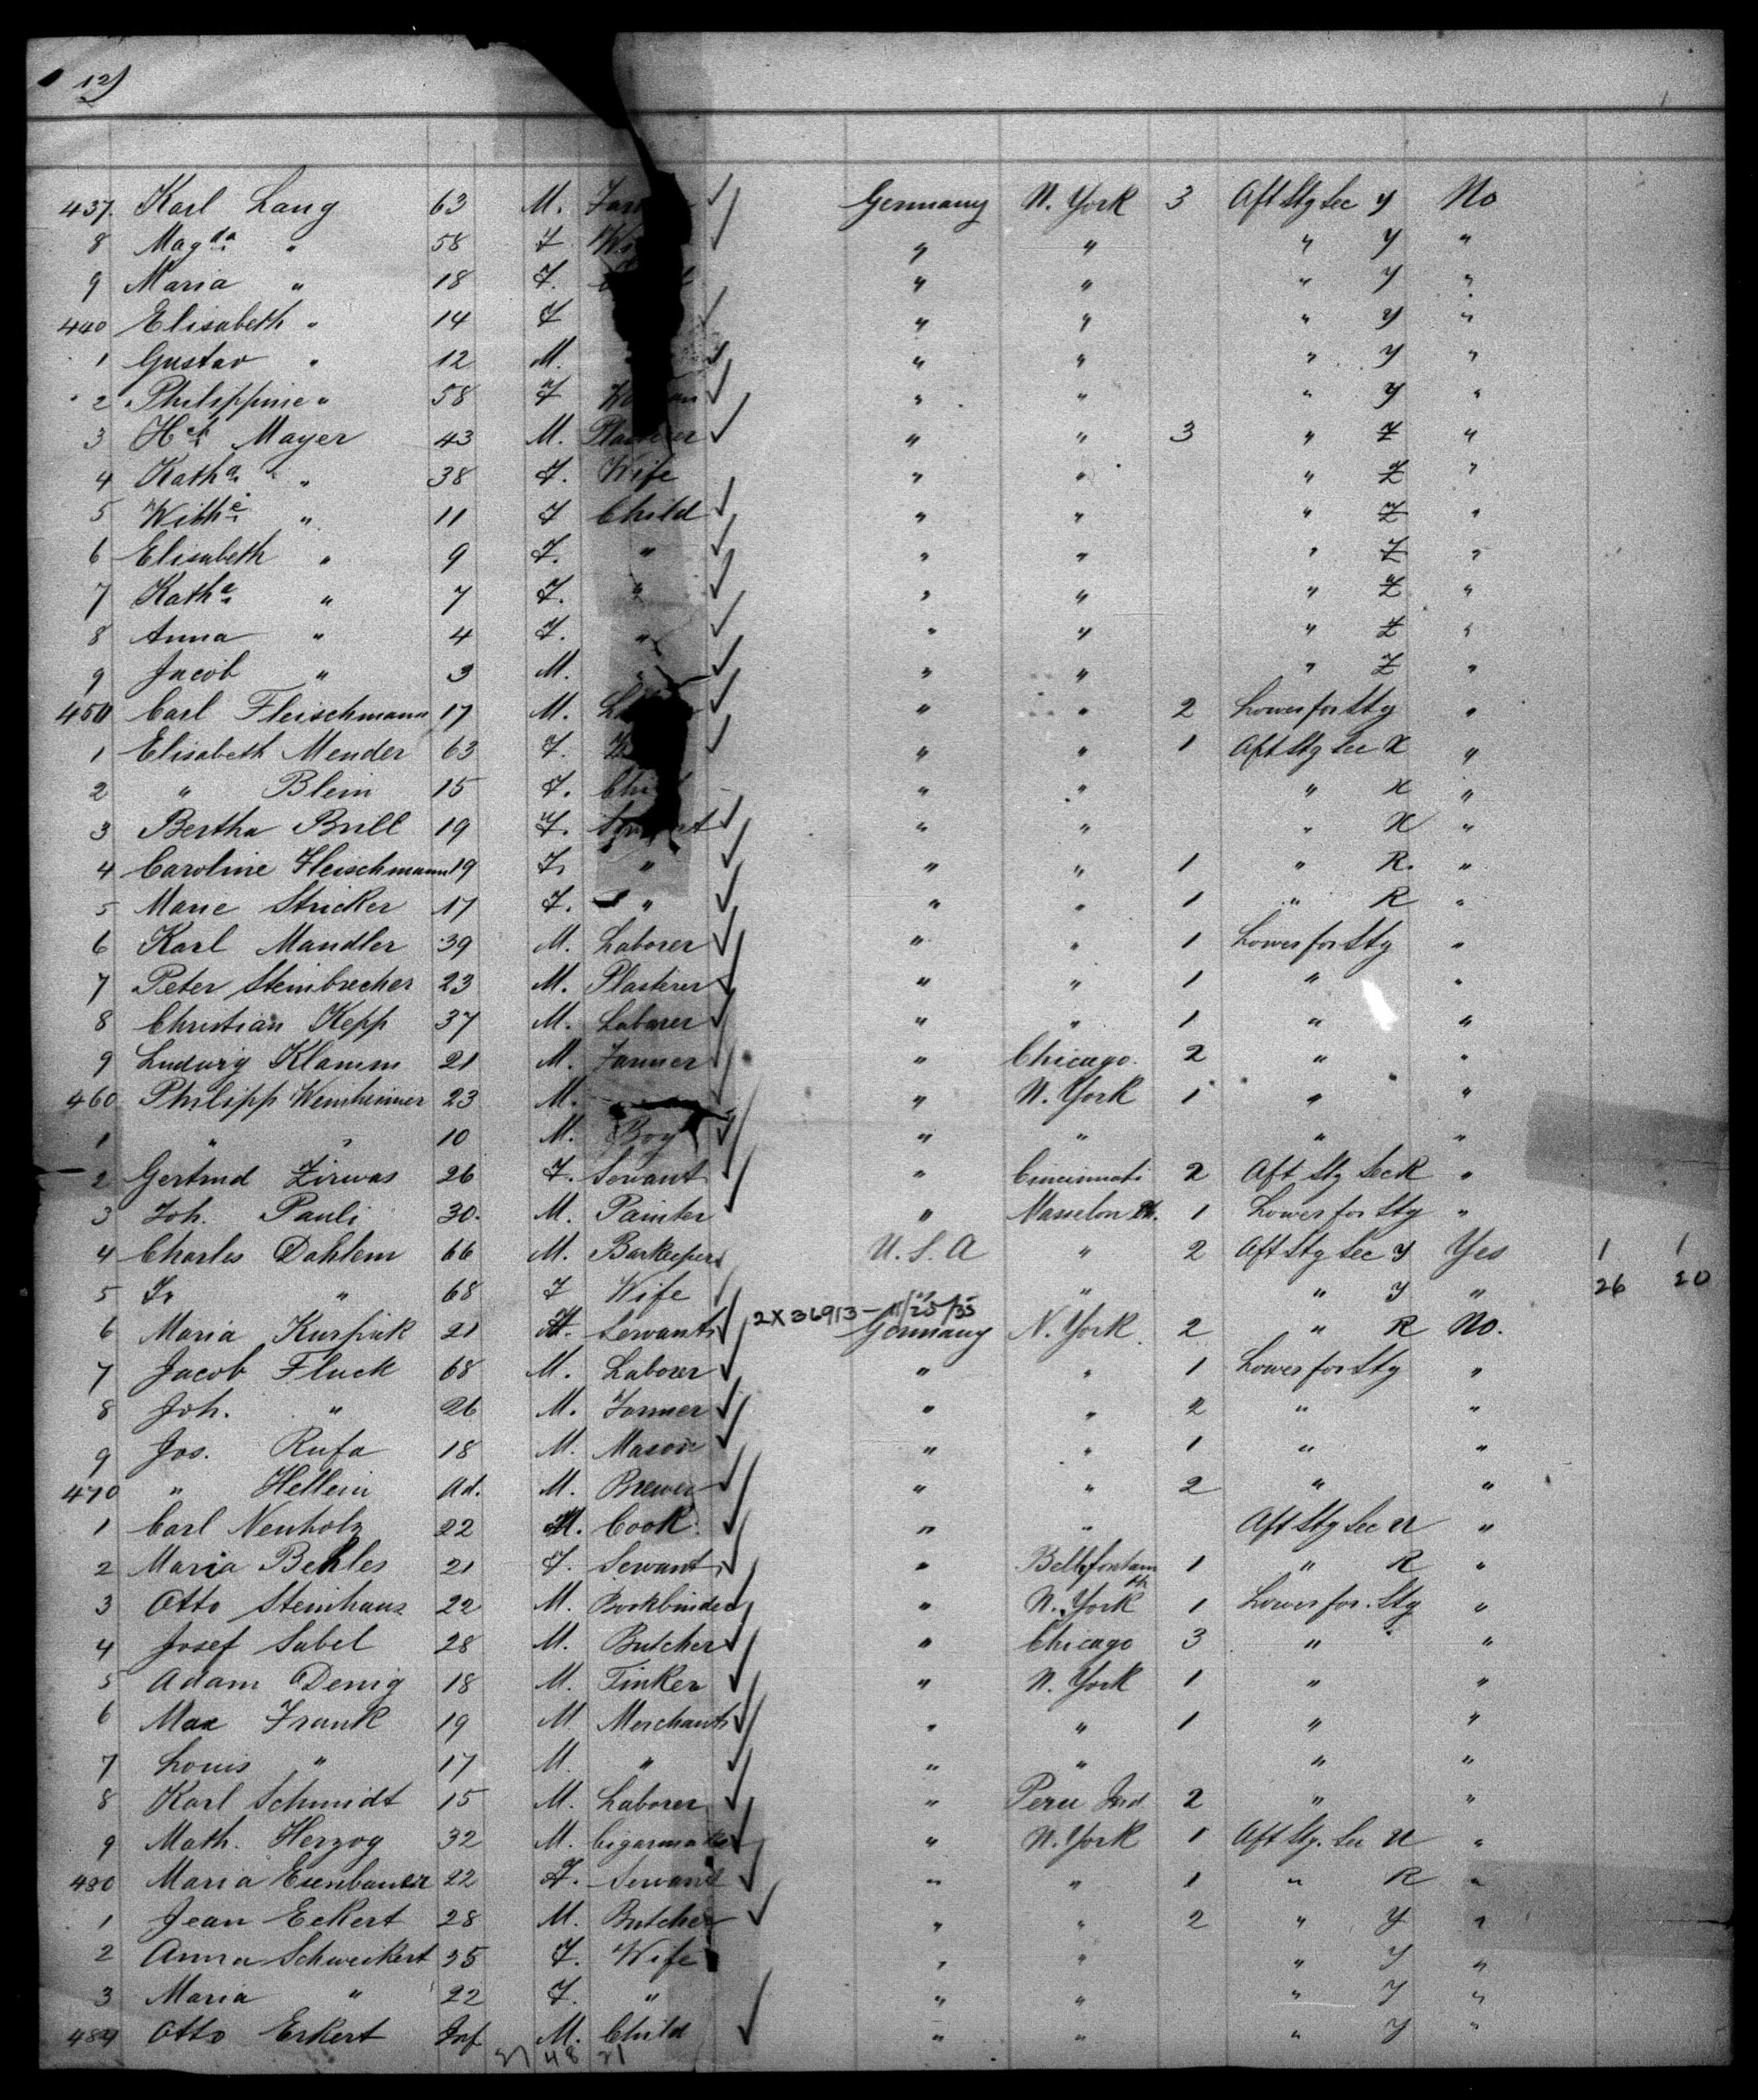 12)
437. Karl Lang 63 M. Germany N. York 3 Aft Stg Sec Y No
8 Magda " 58 F " " " Y "
9 Maria " 18 F. " " " Y "
440 Elisabeth " 14 F " " " Y "
1 Gustav " 12 M. " " " Y "
2 Philippine " 58 F " " " Y "
3 Mayer 43 M. Plasterer " " 3 " Z "
4 Katha " 38 F. Wife " " " Z "
5 " 11 F Child " " " Z "
6 Elisabeth " 9 F. " " " " Z "
7 Kathe " 7 F. " " " " Z "
8 Anna " 4 F. " " " " Z "
9 Jacob " 3 M. " " " Z "
450 Carl Fleischmann 17 M. " " 2 Lower for Stg "
1 Elisabeth Mender 63 F. " " 1 Aft Stg Sec X "
2 " Blein 15 F. " " " X "
3 Bertha Brill 19 F. Servant " " " X "
4 Caroline Fleischmann 19 F. " " " 1 " R. "
5 Marie Stricker 17 F. " " " 1 " R "
6 Karl Mandler 39 M. Laborer " " 1 Lower for Stg "
7 Peter Steinbrecher 23 M. Plasterer " " 1 " "
8 Christian Kepp 37 M. Laborer " " 1 " "
9 Ludwig Klamm 21 M. Farmer " Chicago. 2 " "
460 Philipp Weinheimer 23 M. " N. York 1 " "
1 " " 10 M. Boy " " " "
2 Gertrud Zirwas 26 F. Servant " Cincinnati 2 Aft Stg Sec R "
3 Joh. Pauli 30. M. Painter " Masselon 1 Lower for Stg "
4 Charles Dahlem 66 M. Barkeeper U. S. A " 2 Aft Stg Sec Y Yes 1 1
5 Fr " 68 F Wife " " Y " 26 20
2X36913 - 11/25/35
6 Maria 21 F. Servant Germany N. York 2 " R No.
7 Jacob Fluck 68 M. Laborer " " 1 Lower for Stg "
8 Joh. " 26 M. Farmer " " 2 " "
9 Jos. Rufa 18 M. Mason " " 1 " "
470 " Hellein Ad. M. Brewer " " 2 " "
1 Carl Neuholz 22 M. Cook " " Aft Stg Sec U "
2 Maria Behles 21 F. Servant " 1 " R "
3 Otto Steinhaus 22 M. Bookbinder " N. York 1 Lower for. Stg "
4 Josef Sabel 28 M. Butcher " Chicago 3 " "
5 Adam Denig 18 M. Tinker " N. York 1 " "
6 Max Frank 19 M Merchant " " 1 " "
7 Louis " 17 M. " " " " "
8 Karl Schmidt 15 M. Laborer " Peru Ind 2 " "
9 Math. Herzog 32 M. Cigarmaker " N. York 1 Aft Stg. Sec U "
480 Maria Esenbauer 22 F. Servant " " 1 " R "
1 Jean Eckert 28 M. Butcher " " 2 " Y "
2 Anna Schweikert 35 F. Wife " " " Y "
3 Maria " 22 F. " " " " Y "
484 Otto Eckert Inf M. Child " " " Y "
27 48 21